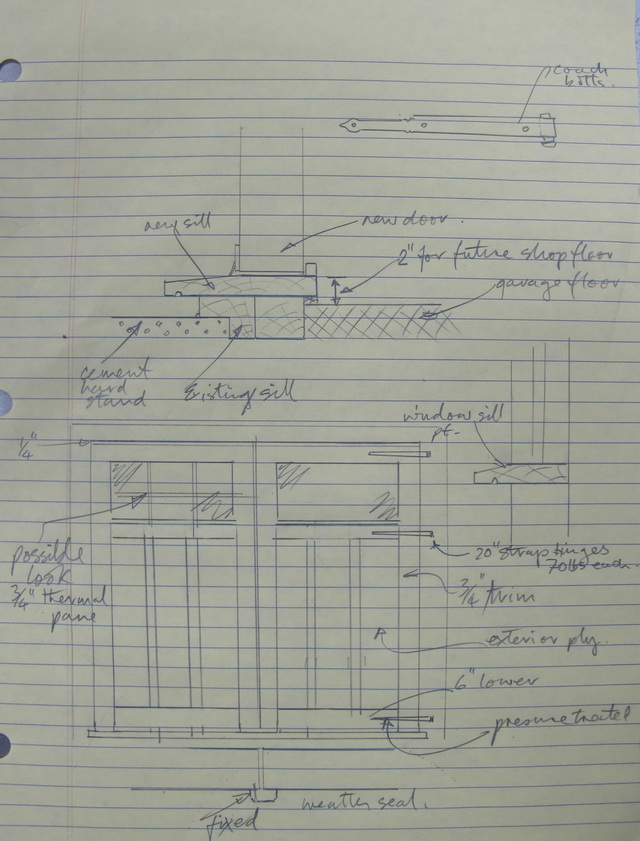 coach
bolts.
new sill
new door.
2" for future shop floor
garage floor
cement
hard
stand
Existing sill
window sill
pt-
1/4"
possible
look
3/4" thermal
pane
20" strap hinges
70lbs each.
3/4" trim
exterior ply.
6" lower
pressure treated
fixed
weather seal.